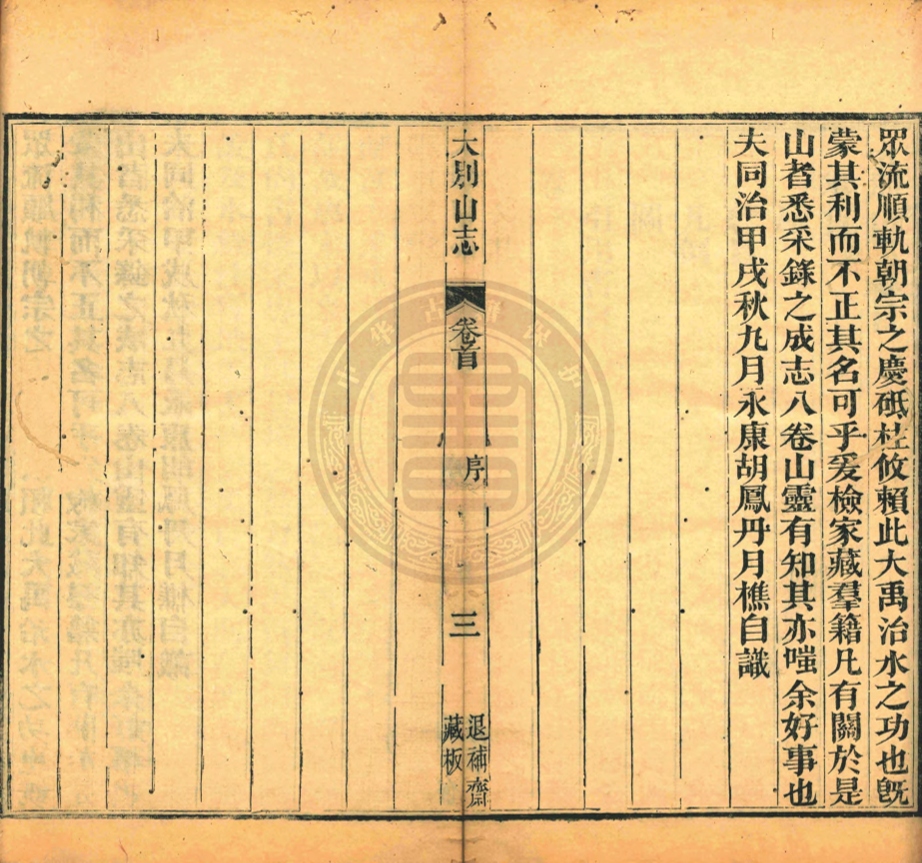 眾流順軌朝宗之慶砥柱攸賴此大禹治水之功也旣
蒙其利而不正其名可乎爰檢家藏羣籍凡有關於是
山者悉采錄之成志八卷山靈有知其亦嗤余好事也
夫同治甲戌秋九月永康胡鳳丹月樵自識
大別山志
卷首
序
三
退補齋
藏板